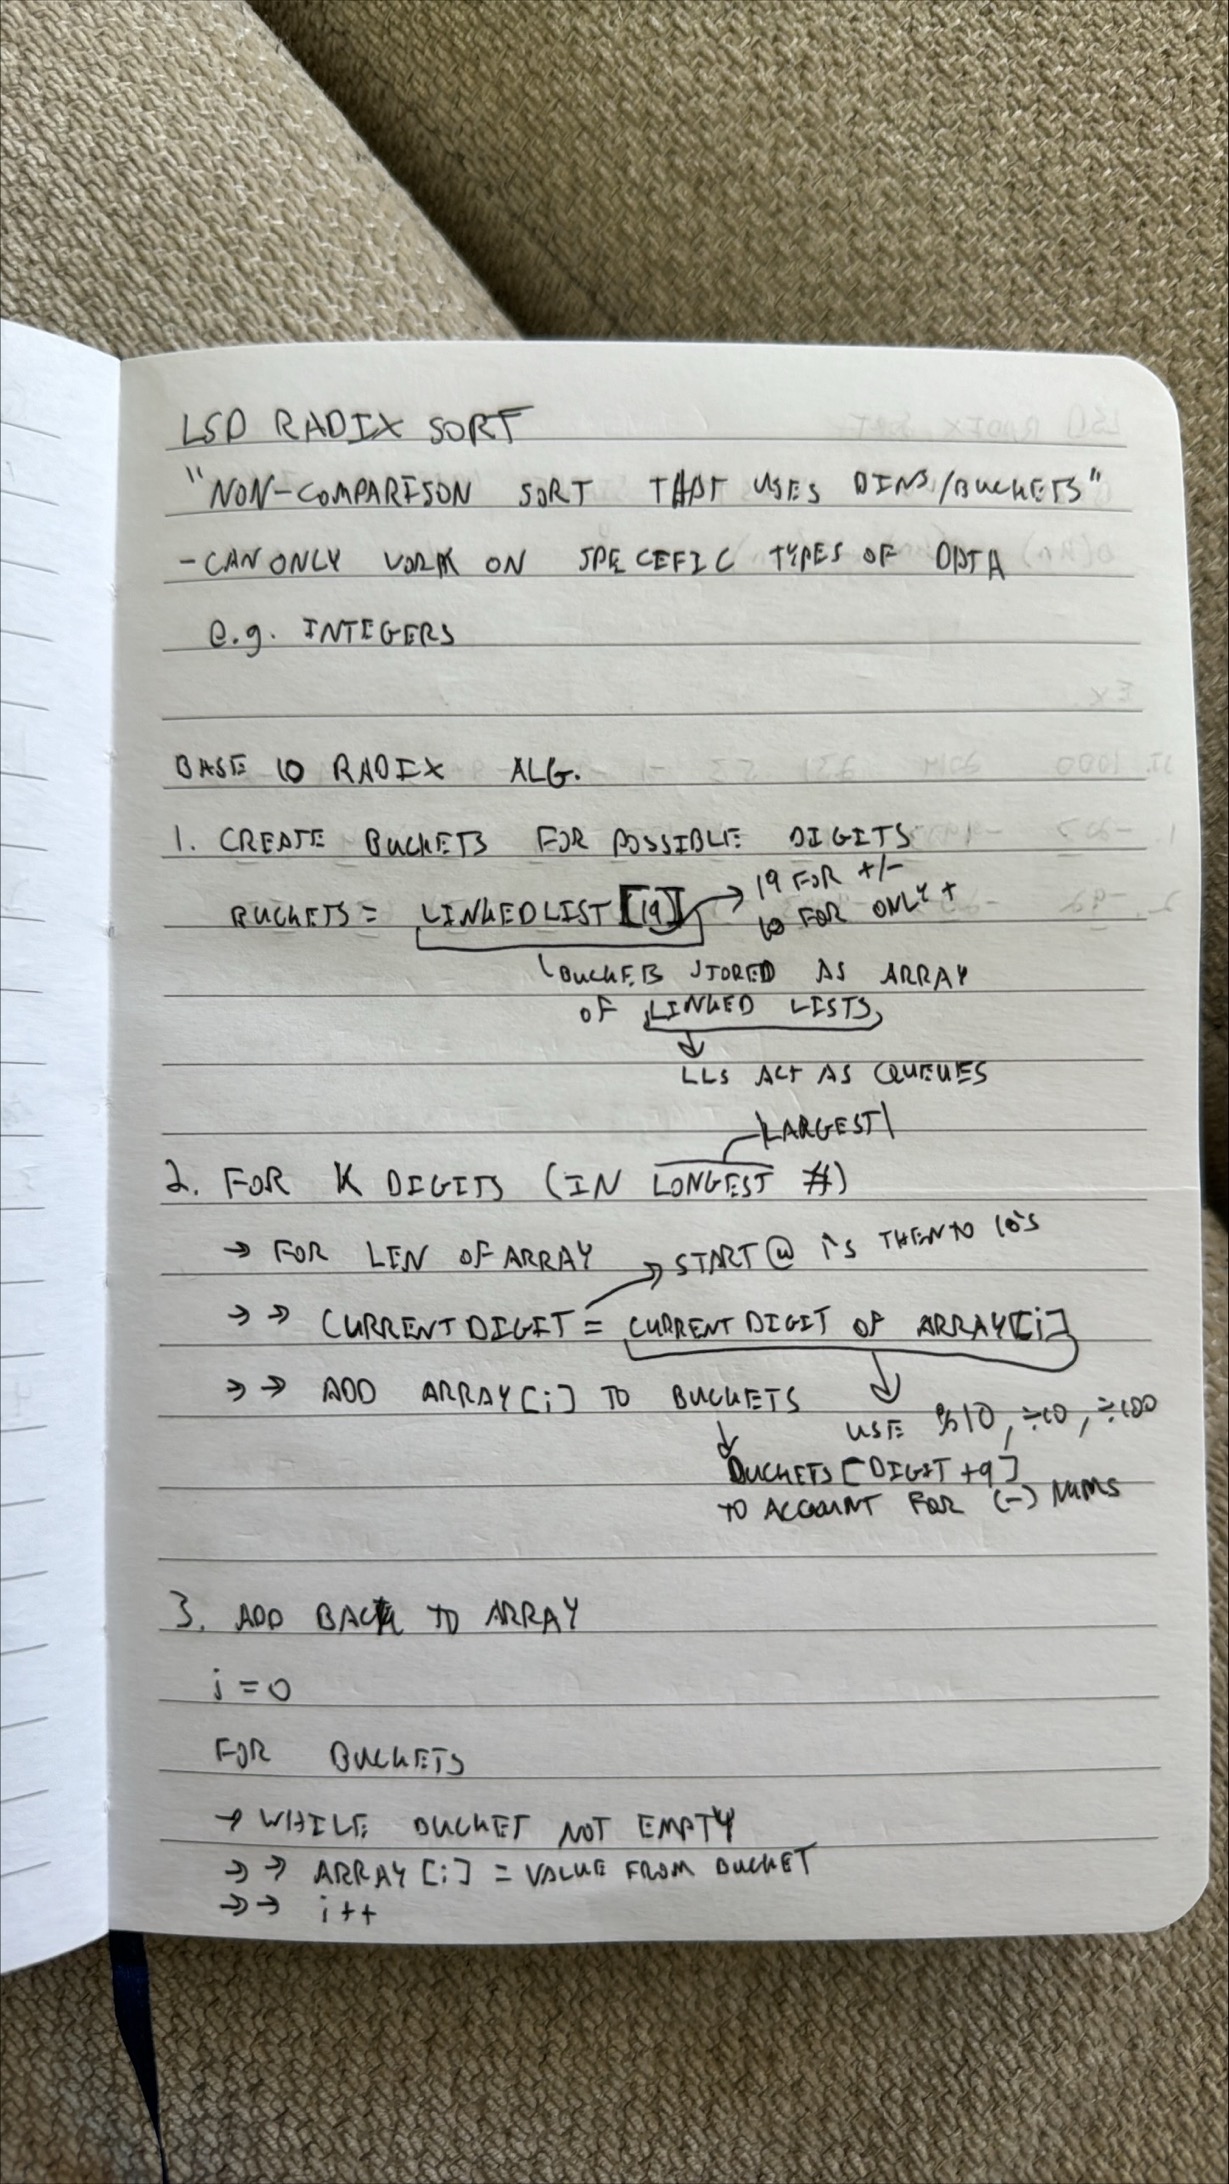 LSD RADIX SORT
"NON-COMPARISON SORT THAT USES BINS/BUCKETS"
- CAN ONLY WORK ON SPECEFIC TYPES OF DATA
e.g. INTEGERS
BASE 10 RADIX ALG.
1. CREATE BUCKETS FOR POSSIBLE DIGITS
BUCKETS = LINKEDLIST[19] → 19 FOR +/-
10 FOR ONLY +
BUCKETS STORED AS ARRAY
OF LINKED LISTS
LLS ACT AS QUEUES
|LARGEST|
2. FOR K DIGITS (IN LONGEST #)
→ FOR LEN OF ARRAY → START @ 1's THEN TO 10's
→ → CURRENT DIGIT = CURRENT DIGIT OF ARRAY[i]
→ → ADD ARRAY[i] TO BUCKETS
USE %10, ÷10, ÷100
BUCKETS[DIGIT +9]
TO ACCOUNT FOR (-) NUMS
3. ADD BACK TO ARRAY
i = 0
FOR BUCKETS
→ WHILE BUCKET NOT EMPTY
→ → ARRAY[i] = VALUE FROM BUCKET
→ → i++